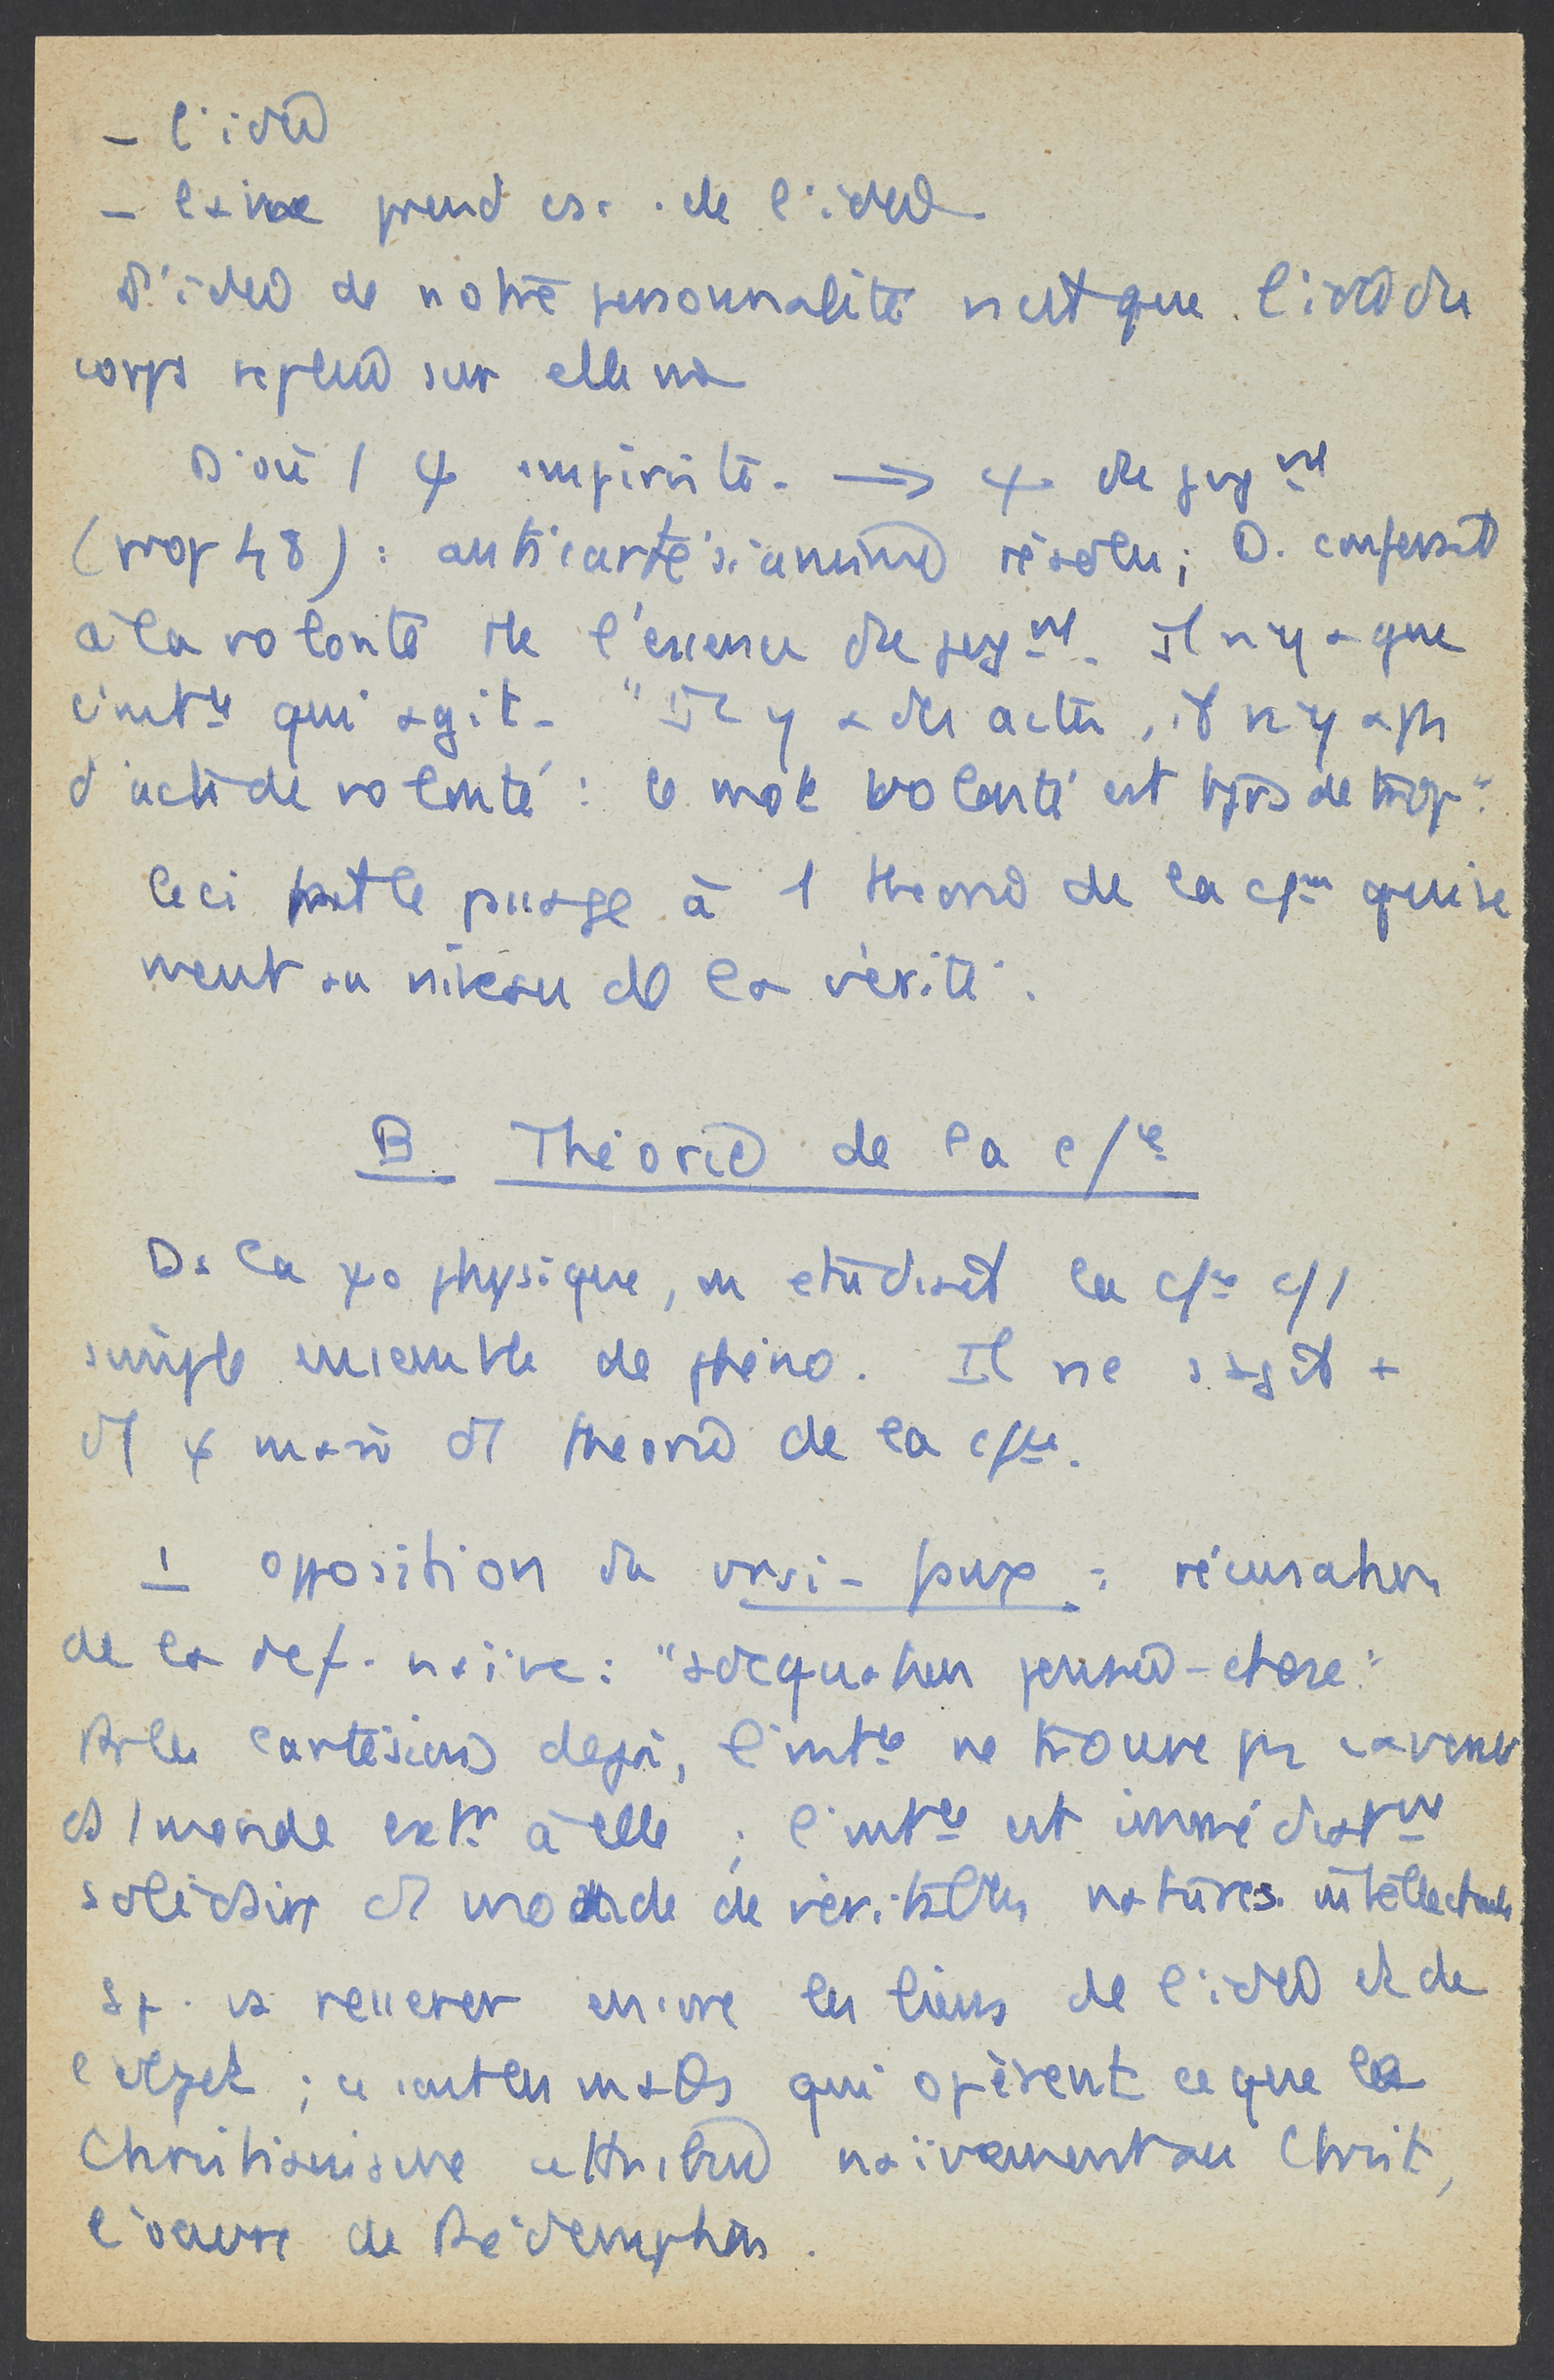 - l'idée
- l'âme prend csc. de l'idée
L'idée de notre personnalité n'est que l'idée du
corps repliée sur elle m̂
D'où 1 ψ empiriste. → ψ du jug^nt
(prop 48) : anticartésianisme résolu ; D. confersait
à la volonté de l'essence du jug^nt. Il n'y a que
l'int^ce qui agit. "Il y a des actes, il n'y a pas
d'acte de volonté : le mot volonté est tjrs de trop."
Ceci permet le passage à 1 théorie de la c/^ce qui se
meut au niveau de la vérité.
B Théorie de la c/^ce
Ds la ψo physique, on étudiait la c/^ce c/ 1
simple ensemble de phéno. Il ne s'agit +
d'1 ψ mais d'1 théorie de la c/^ce.
1 opposition du vrai - faux : récusation
de la def. naïve : "adéquation pensée - chose."
Pr les cartésiens déjà, l'int^ce ne trouve pas sa vérité
ds 1 monde ext^r à elle ; l'int^ce est immédiat^nt
solidaire d'1 monde de véritables natures intellectuelles
Sp. va resserrer encore les liens de l'idée et de
l'objet ; ce sont les maths qui opèrent ce que le
Christianisme attribue naïvement au Christ,
l'oeuvre de Rédemption.